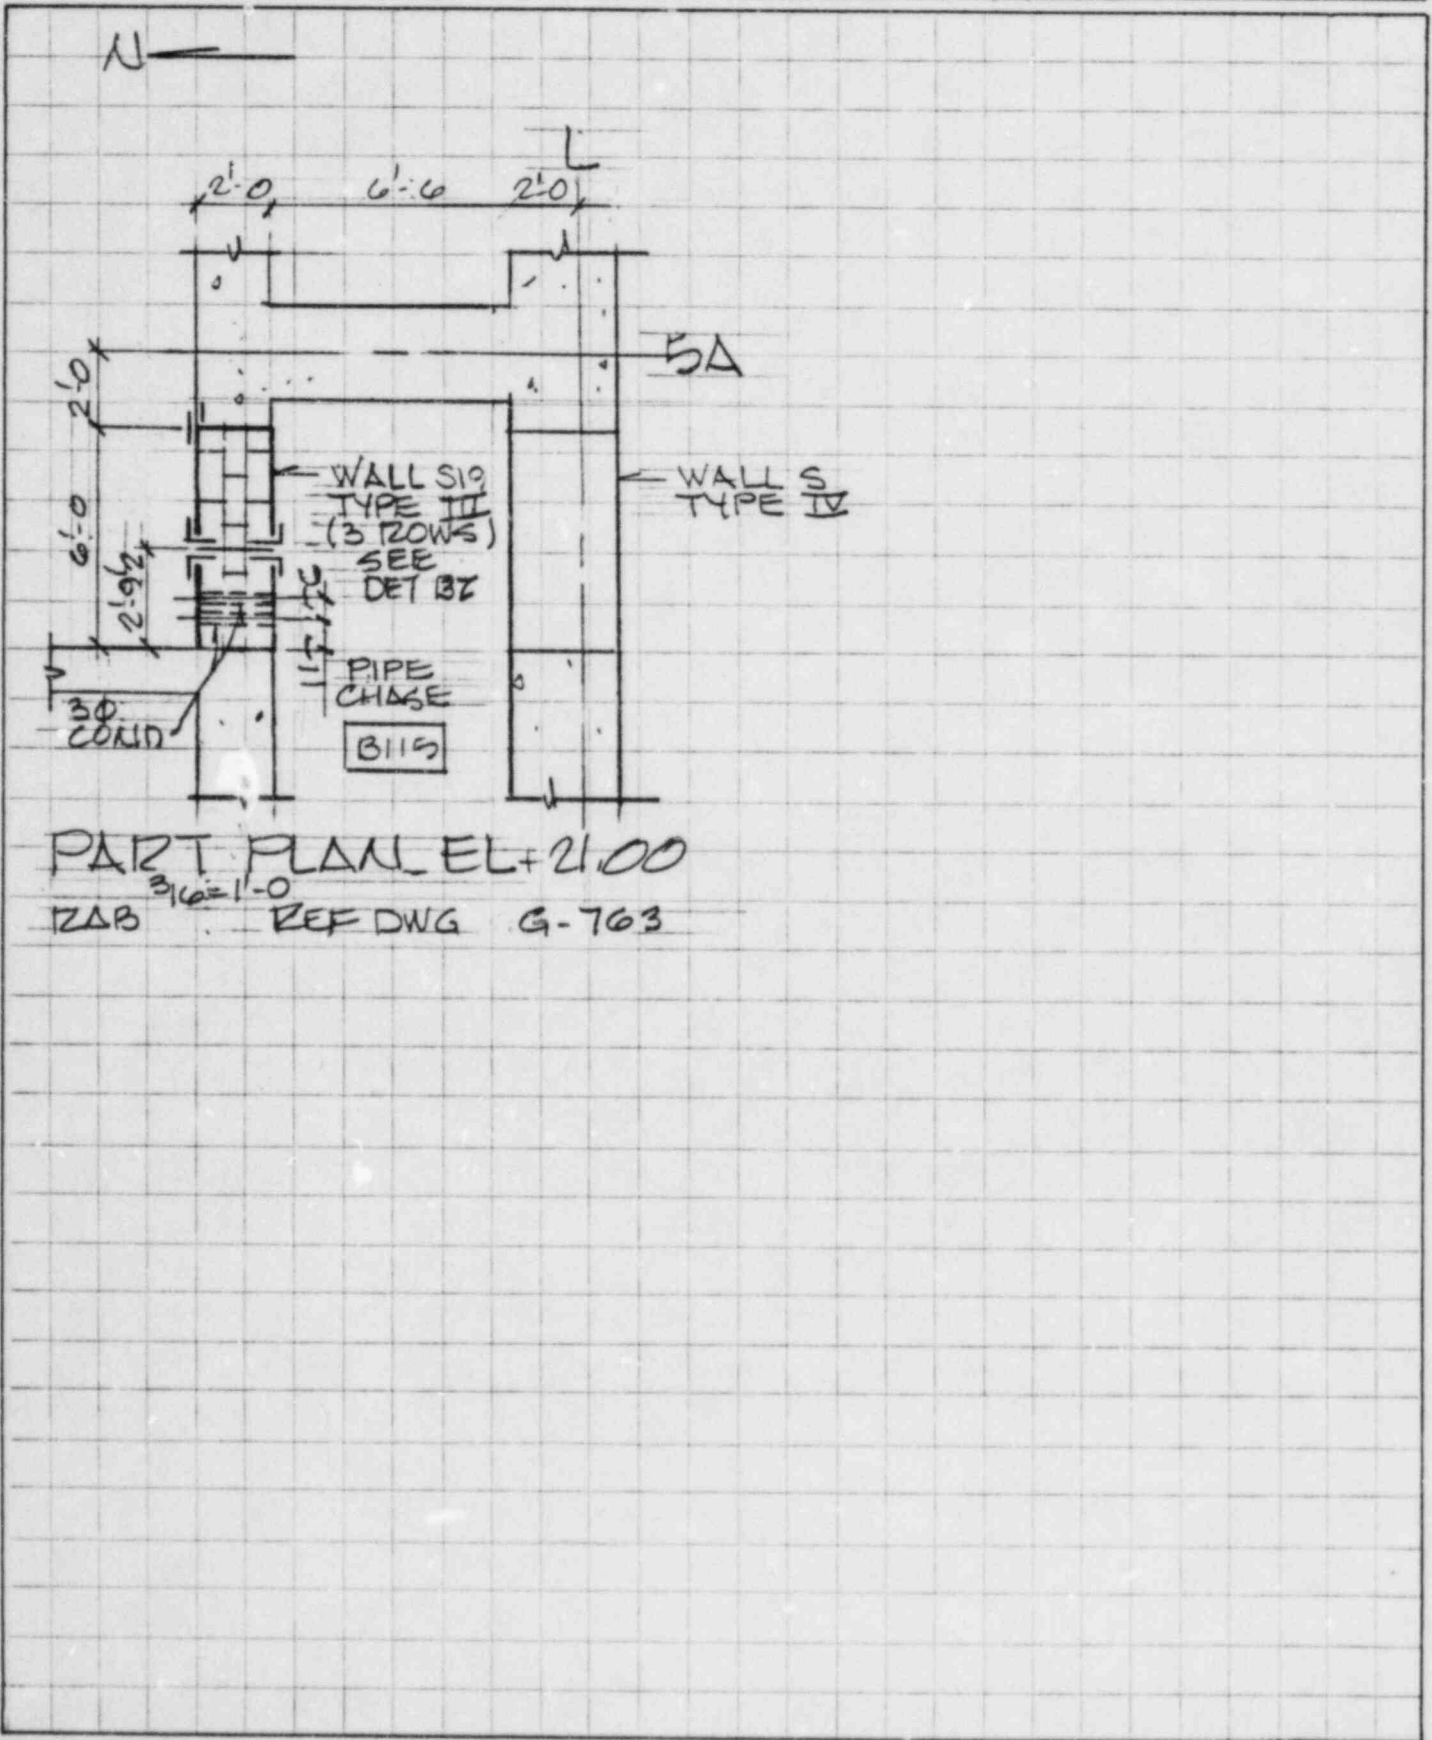 N
L
2'-0 6'-6 2'-0
5A
2'-0
6'-0
2'-9½
WALL S19
TYPE III
(3 ROWS)
SEE
DET B7
WALL S
TYPE IV
PIPE
CHASE
3Ø
COND
B115
PART PLAN EL+21.00
3/16=1'-0
RAB REF DWG G-763